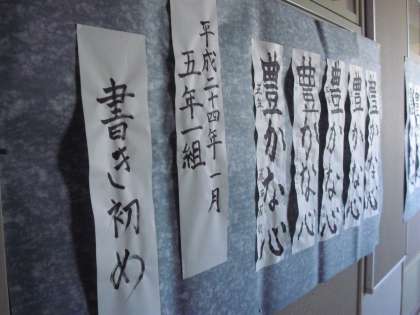 書き初め
平成二十四年一月
五年一組
豊かな心
豊かな心
豊かな心
豊かな心
豊かな心